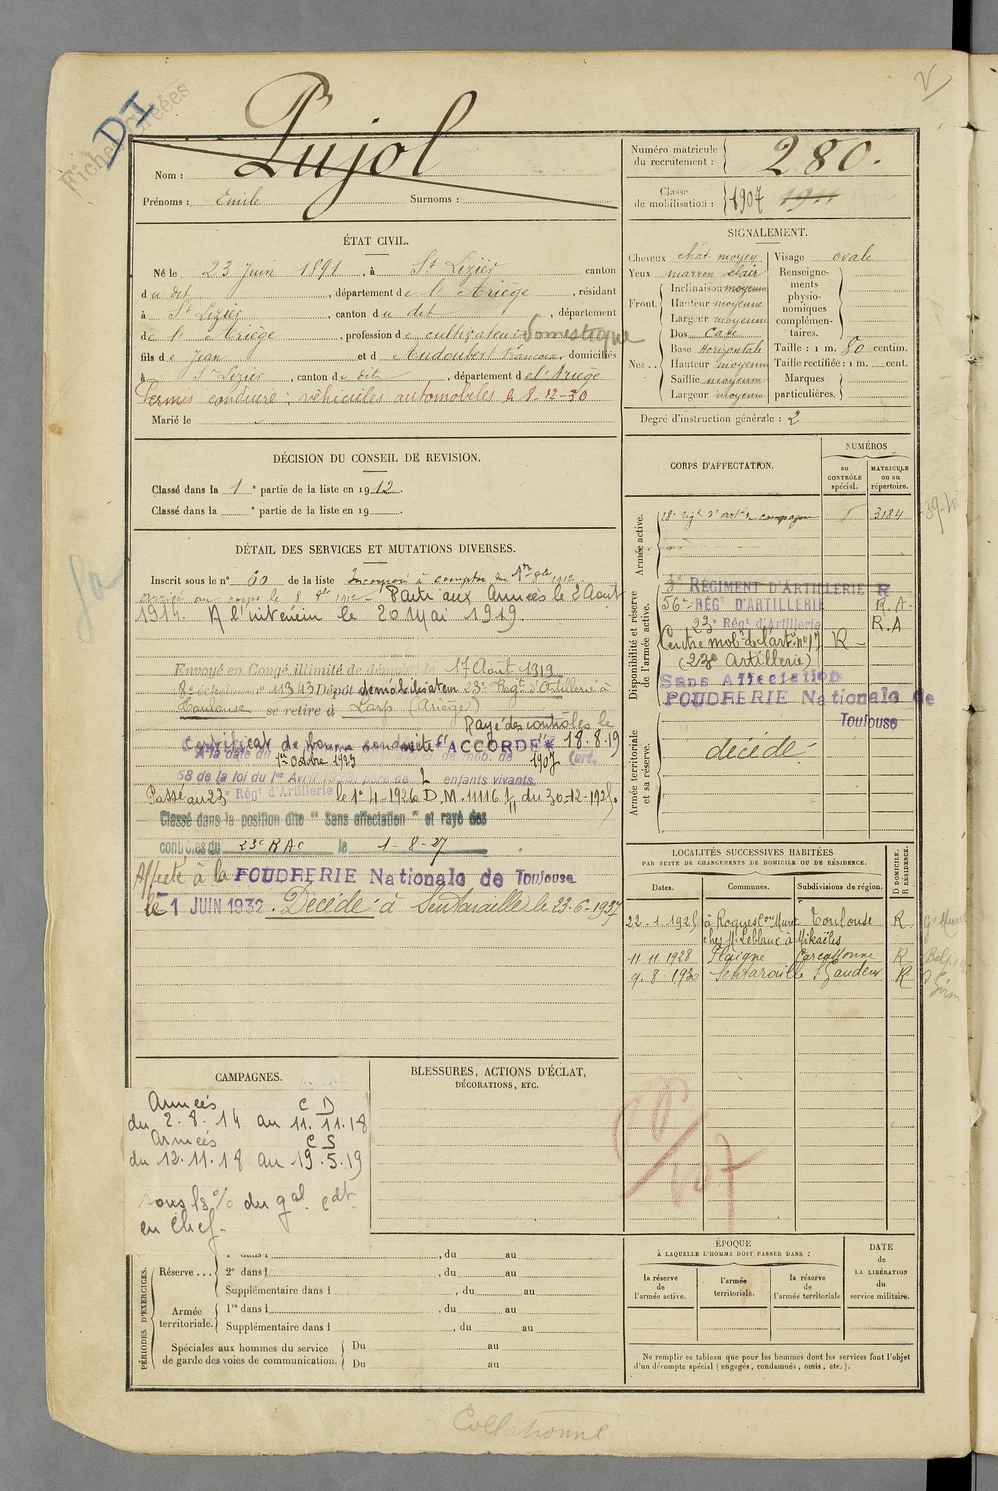 Fiches créées
DI
Nom : Pujol
Prénoms : Emile Surnoms :
ÉTAT CIVIL.
Né le 23 Juin 1891, à St Lizier canton
du dit, département de l'Ariège, résidant
à St Lizier, canton du dit, département
de l'Ariège, profession de cultivateur Domestique
fils de Jean et d'Audoubert Françoise, domiciliés
à St Lizier, canton du dit, département de l'Ariège
Permis conduire : véhicules automobiles le 8-12-30
Marié le
DÉCISION DU CONSEIL DE REVISION.
Classé dans la 1e partie de la liste en 1912.
Classé dans la e partie de la liste en 19 .
DÉTAIL DES SERVICES ET MUTATIONS DIVERSES.
Inscrit sous le n° 60 de la liste Incorporé à compter du 1er 8bre 1912
arrivé au corps le 8 8bre 1912 Parti aux Armées le 2 Aout
1914. A l'intérieur le 20 Mai 1919.
Envoyé en Congé illimité de démob. le 17 Août 1919
8e échelon n° 11343 Dépôt démobilisateur 23e Regt d'Artillerie à
Toulouse se retire à Lorp (Ariège)
Rayé des contrôles le
Certificat de bonne conduite "ACCORDÉ" 18.8.19
A la date du 1er Octobre 1923 de mob. de 1907 (art.
58 de la loi du 1er Avril père de 2 enfants vivants.
Passé au 23e Régt d'Artillerie le 1er 4-1926 D.M. 11116 1/11 du 30-12-1925.
Classé dans la position dite "Sans affectation" et rayé des
contrôles du 23e RAC le 1-8-27
Affecté à la POUDRERIE Nationale de Toulouse
le 1 JUIN 1932. Décédé à Sentaraille le 23-6-1937
Numéro matricule du recrutement : 280.
Classe de mobilisation : 1907 1911
SIGNALEMENT.
Cheveux chât moyen
Yeux marron clair
Front. Inclinaison moyenne
Hauteur moyenne
Largeur moyenne
Nez.. Dos Cave
Base Horizontale
Hauteur moyenne
Saillie moyenne
Largeur moyenne
Visage ovale
Renseignements physionomiques complémentaires.
Taille : 1 m. 80 centim.
Taille rectifiée : 1 m. cent.
Marques particulières.
Degré d'instruction générale : 2
CORPS D'AFFECTATION.
NUMÉROS
au CONTRÔLE spécial.
MATRICULE ou au répertoire.
Armée active.
18e régt d'artie campagne 3184
Disponibilité et réserve de l'armée active.
3e RÉGIMENT D'ARTILLERIE R
56e RÉGt D'ARTILLERIE R.A.
23e Régt d'Artillerie R.A
Centre mobre de l'arte n° 17 R
(23e Artillerie)
Sans Affectation
POUDRERIE Nationale de
Toulouse
Armée territoriale et sa réserve.
décédé
LOCALITÉS SUCCESSIVES HABITÉES
PAR SUITE DE CHANGEMENTS DE DOMICILE OU DE RÉSIDENCE.
Dates. Communes. Subdivisions de région. D DOMICILE. R RÉSIDENCE.
22.1.1925 à Roques con Muret Toulouse R
chez M. Leblanc à Mikaëlis
11.11.1928 Plaigne Carcassonne R
9.8.1930 Sentaraille St Gaudens R
CAMPAGNES.
Armées C D
du 2.8.14 au 11.11.18
Armées C S
du 12.11.18 au 19.5.19
sous les % du gal cdt
en chef.
BLESSURES, ACTIONS D'ÉCLAT,
DÉCORATIONS, ETC.
PÉRIODES D'EXERCICES.
Réserve...
1re dans l , du au
2e dans l , du au
Supplémentaire dans l , du au
Armée territoriale.
1re dans l , du au
Supplémentaire dans l , du au
Spéciales aux hommes du service de garde des voies de communication.
Du au
Du au
ÉPOQUE
À LAQUELLE L'HOMME DOIT PASSER DANS :
la réserve de l'armée active.
l'armée territoriale.
la réserve de l'armée territoriale
DATE de LA LIBÉRATION du service militaire.
Ne remplir ce tableau que pour les hommes dont les services font l'objet
d'un décompte spécial (engagés, condamnés, omis, etc.).
Collationné